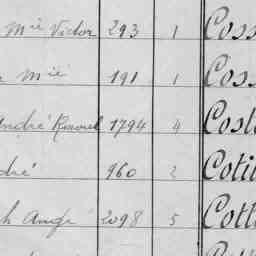 Mie Victor 293 1 Coss
Mie 191 1 Coss
André 1794 4 Cost
dré 960 2 Coti
h Ange 2098 5 Cott